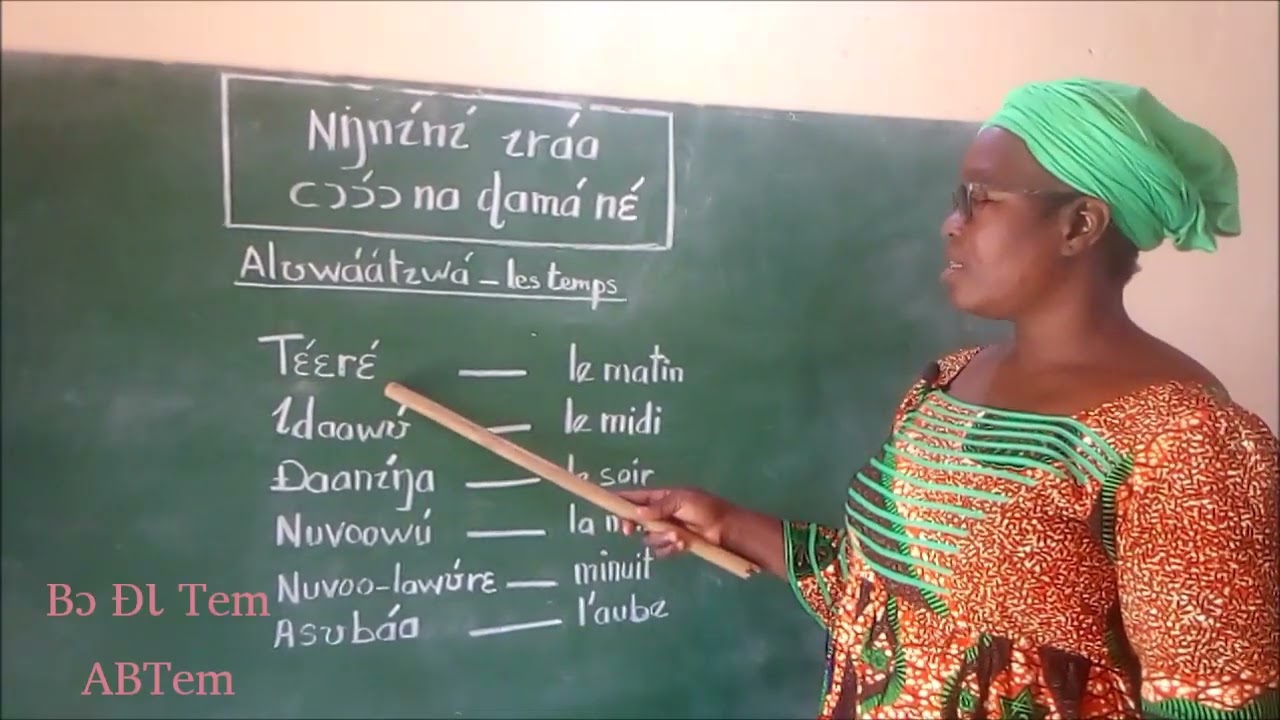 Nıŋnɩ́nɩ́ ɩráa
cɔɔ́ɔ na ɖamá nɛ́
Alʊwáátɩwá – les temps
Tɛ́ɛrɛ́ — le matin
Ɩdaawʊ́ — le midi
Ɖaanɩ́ŋa — le soir
Nuvoowú — la
Nuvoo-lawʊ́rɛ — minuit
Asʊbáa — l'aube
Bɔ ƉƖ Tem
ABTem